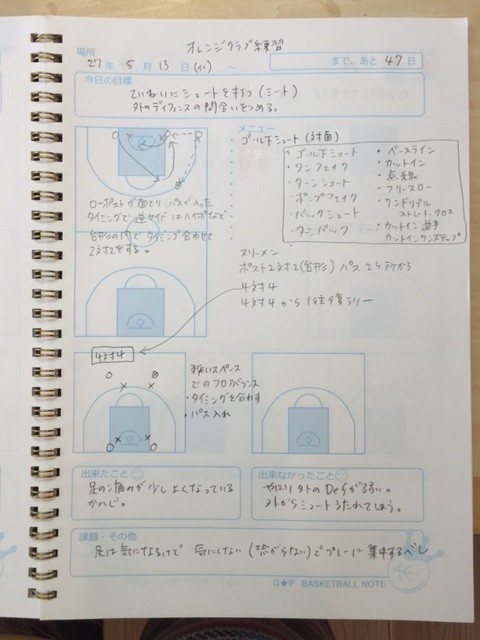 オレンジクラブ練習
場所
27年 5月 13日(水) ~ まで、あと 47日
今日の目標
ていねいにシュートをうつ(ミート)
外のディフェンスの間合いをつめる。
メニュー
ゴール下シュート(対面)
・ゴール下シュート
・ワンフェイク
・ターンシュート
・ポンプフェイク
・バックシュート
・タニバック
・ベースライン
・カットイン
・点線
・フリースロー
・ワンドリブル
ストレート、クロス
・カットイン逆手
カットインワンステップ
ローポストが面とり パスが入った
タイミングで逆サイドはハイポストで
台形の内でタイミング合わせて
2対2をする。
スリーメン
ポスト2対2(台形) パス2ヶ所から
4対4
4対4から1往復ラリー
4対4
狭いスペース
でのフロアバランス
・タイミングを合わす
・パス入れ
出来たこと
足の痛みが少しよくなっている
かんじ。
出来なかったこと
やはり外のDefがゆるい。
外からシュートうたれてしまう。
課題・その他
足は気になるけど 気にしない(恐がらない)でプレーに集中するべし
G★F BASKETBALL NOTE